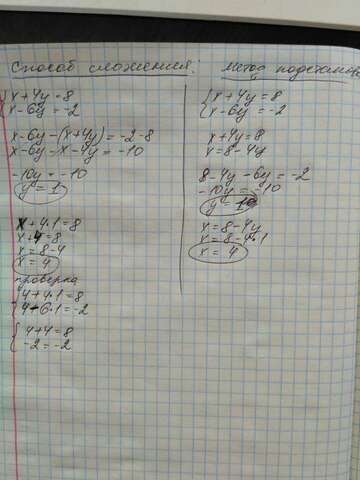 Способ сложения:
{x + 4y = 8
{x - 6y = -2
x - 6y - (x + 4y) = -2 - 8
x - 6y - x - 4y = -10
-10y = -10
y = 1
x + 4 · 1 = 8
x + 4 = 8
x = 8 - 4
x = 4
проверка
{4 + 4 · 1 = 8
{4 - 6 · 1 = -2
{4 + 4 = 8
{-2 = -2
Метод подстановк
{x + 4y = 8
{x - 6y = -2
x + 4y = 8
x = 8 - 4y
8 - 4y - 6y = -2
-10y = -10
y = 1
x = 8 - 4y
x = 8 - 4 · 1
x = 4